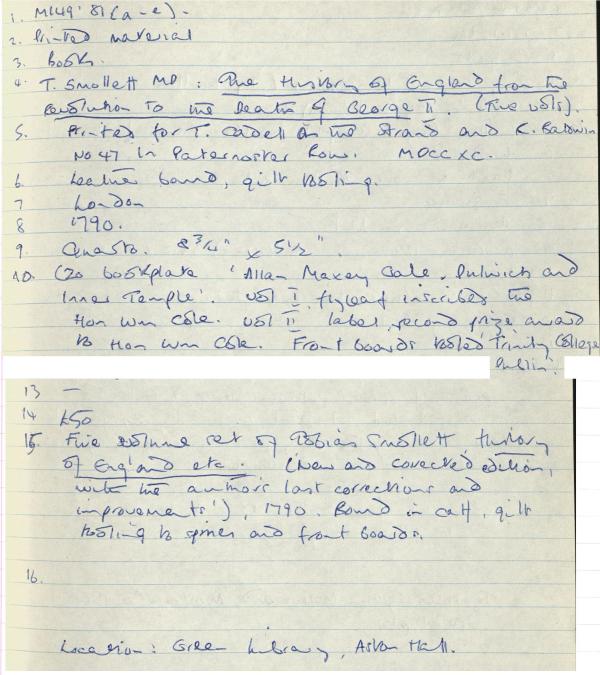 1. M149'81(a-e).
2. Printed material
3. Books.
4. T. Smollett MD : The History of England from the
Revolution to the Death of George II. (Five vols).
5. Printed for T. Cadell in the Strand and R. Baldwin
No 47 in Paternoster Row. MDCCXC.
6 Leather bound, gilt tooling.
7 London
8 1790.
9. Quarto. 8 3/4" x 5 1/2".
10. bookplate 'Allan Maxey Gale, Dulwich and
Inner Temple'. Vol I flyleaf inscribed the
Hon Wm Cole. Vol II label, second prize award
to Hon Wm Cole. Front boards tooled 'Trinity College
Dublin'.
13 —
14 £50
15. Five volume set of Tobias Smollett History
of England etc. (New and corrected edition,
with the author's last corrections and
improvements'), 1790. Bound in calf, gilt
tooling to spines and front boards.
16.
Location: Green Library, Aston Hall.